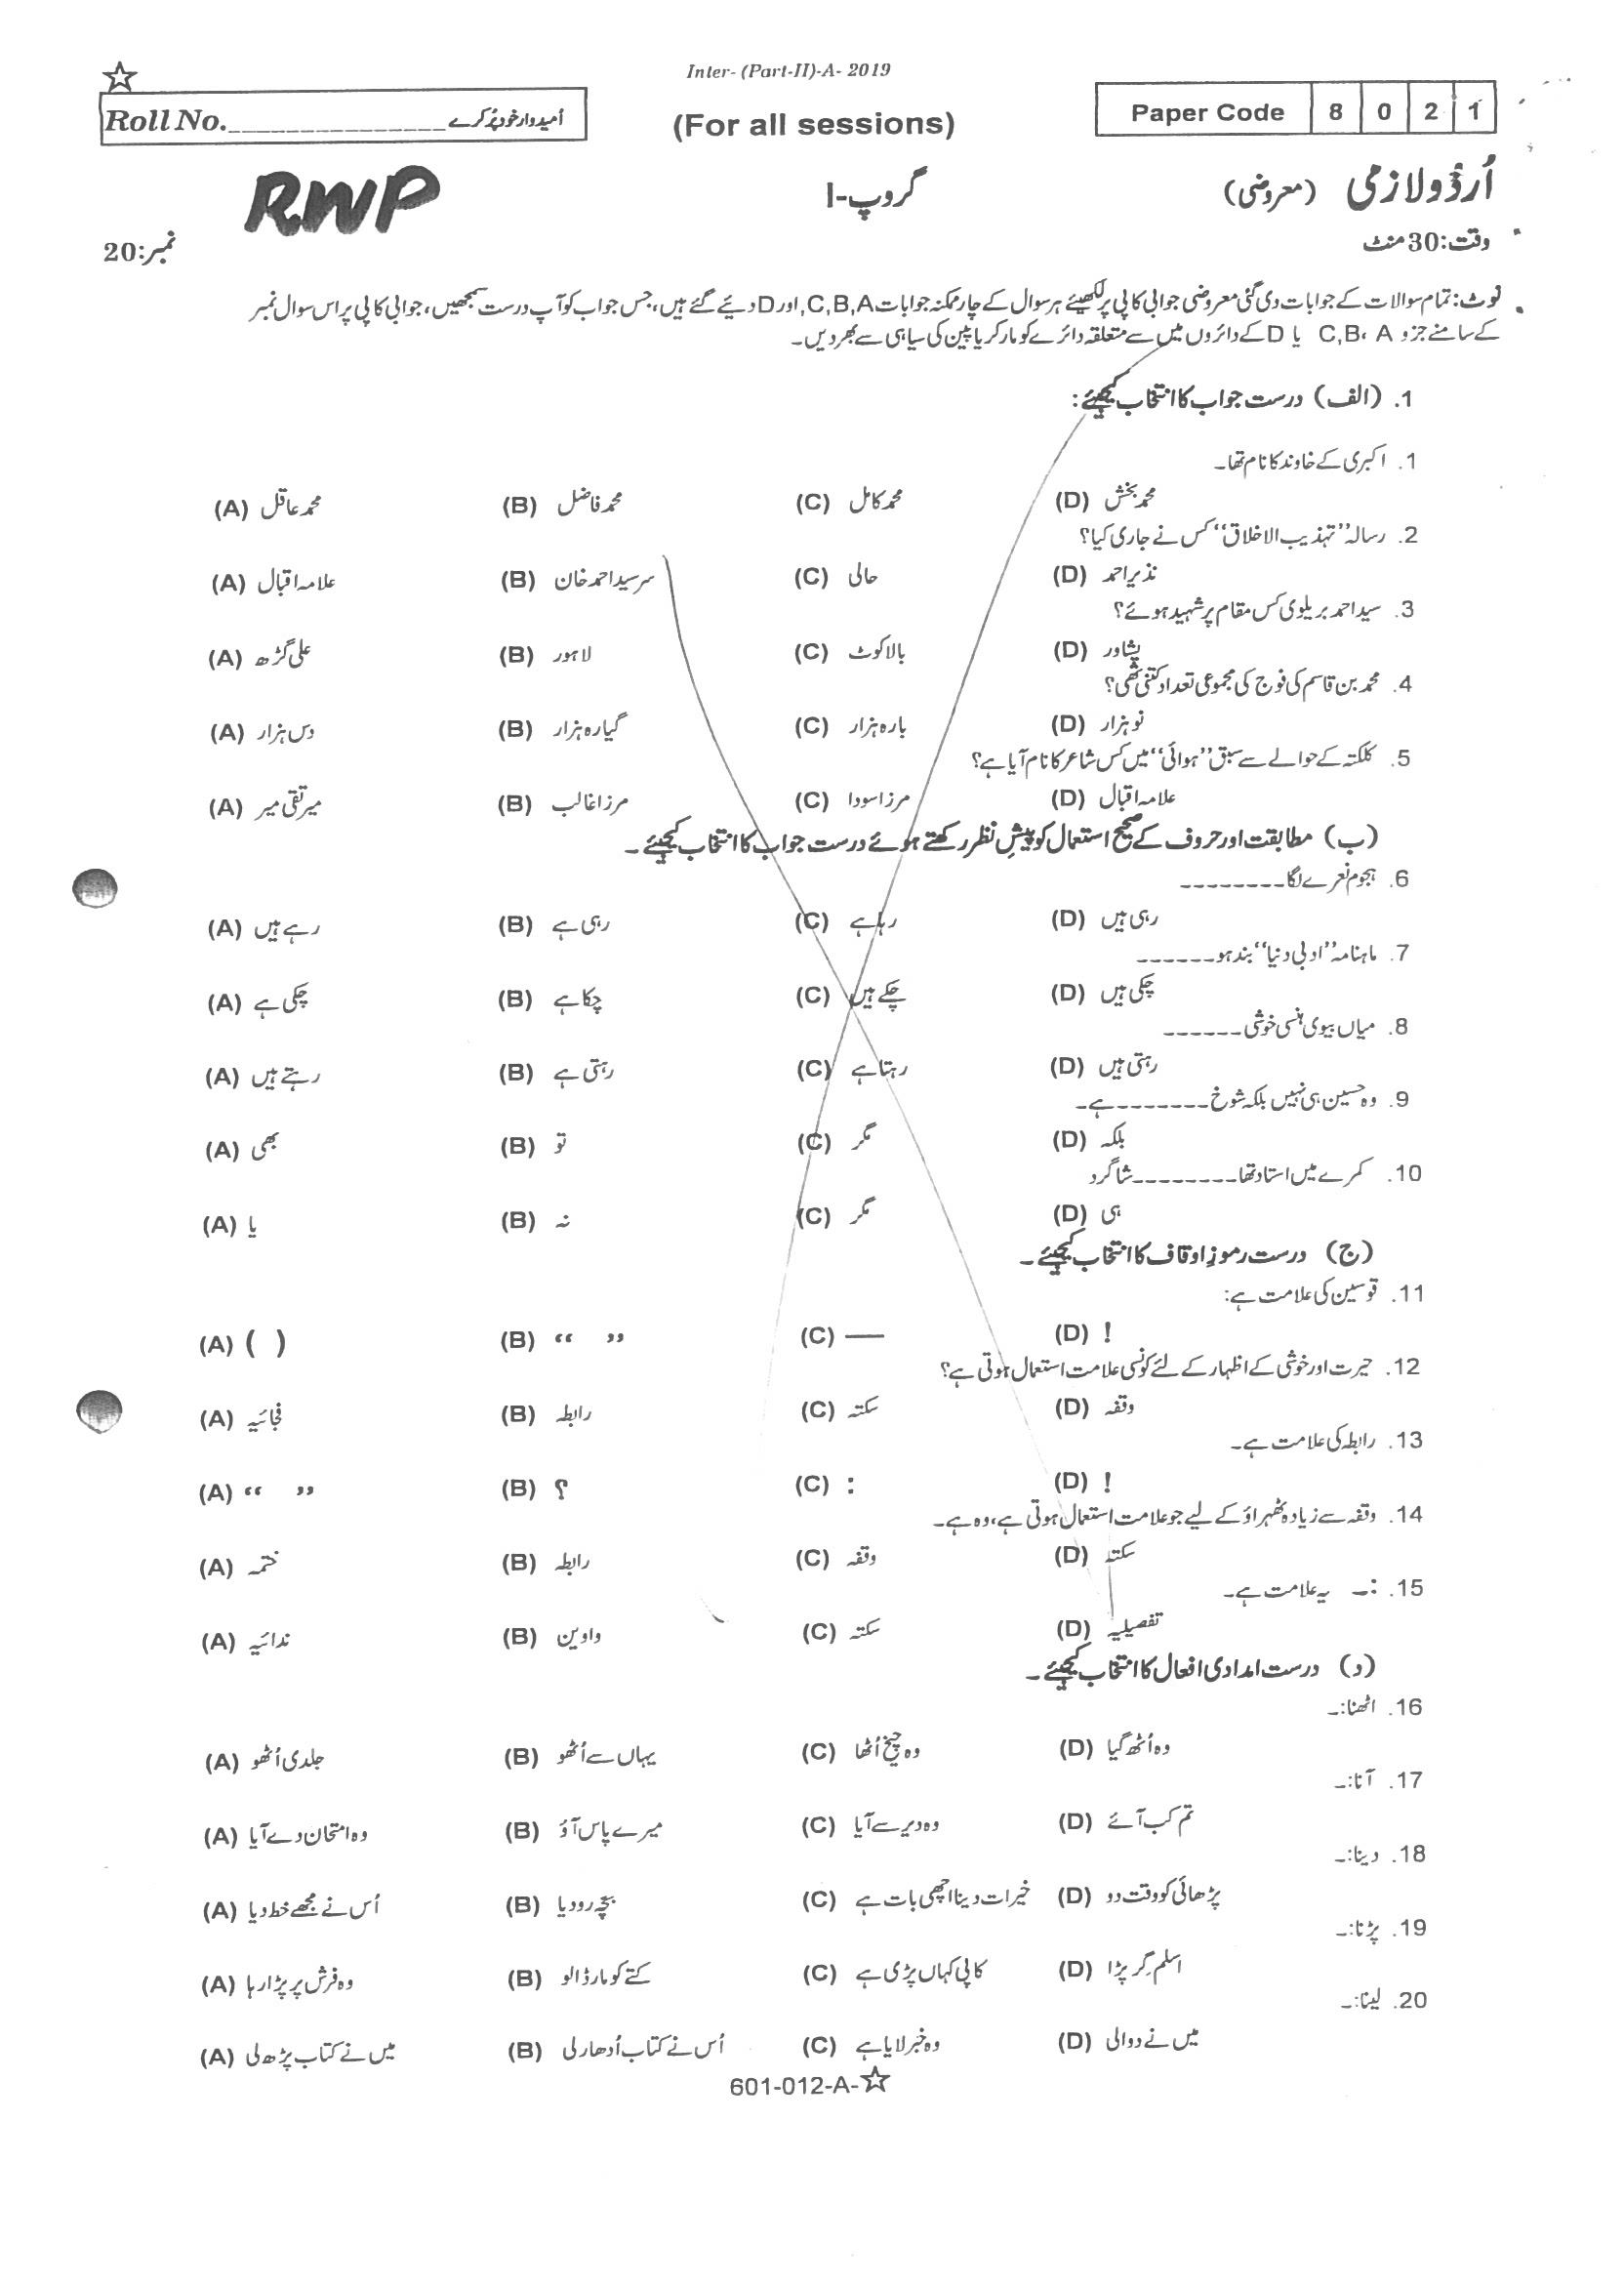 Inter- (Part-II)-A- 2019
☆
Roll No.________________ اُمیدوار خود پُر کرے
(For all sessions)
Paper Code 8 0 2 1
اُردُو لازمی (معروضی)
گروپ-I
RWP
وقت: 30 منٹ
نمبر: 20
نوٹ: تمام سوالات کے جوابات دی گئی معروضی جوابی کاپی پر لکھیئے ہر سوال کے چار ممکنہ جوابات C,B,A, اور D دیئے گئے ہیں، جس جواب کو آپ درست سمجھیں، جوابی کاپی پر اس سوال نمبر
کے سامنے جزو C,B، A یا D کے دائروں میں سے متعلقہ دائرے کو مارکر یا پین کی سیاہی سے بھر دیں۔
1. (الف) درست جواب کا انتخاب کیجیئے:
1. اکبری کے خاوند کا نام تھا۔
(A) محمد عاقل (B) محمد فاضل (C) محمد کامل (D) محمد بخش
2. رسالہ ”تہذیب الاخلاق“ کس نے جاری کیا؟
(A) علامہ اقبال (B) سرسید احمد خان (C) حالی (D) نذیر احمد
3. سید احمد بریلوی کس مقام پر شہید ہوئے؟
(A) علی گڑھ (B) لاہور (C) بالاکوٹ (D) پشاور
4. محمد بن قاسم کی فوج کی مجموعی تعداد کتنی تھی؟
(A) دس ہزار (B) گیارہ ہزار (C) بارہ ہزار (D) نو ہزار
5. کلکتہ کے حوالے سے سبق ”ہوائی“ میں کس شاعر کا نام آیا ہے؟
(A) میر تقی میر (B) مرزا غالب (C) مرزا سودا (D) علامہ اقبال
(ب) مطابقت اور حروف کے صحیح استعمال کو پیشِ نظر رکھتے ہوئے درست جواب کا انتخاب کیجیئے۔
6. ہجوم نعرے لگا--------
(A) رہے ہیں (B) رہی ہے (C) رہا ہے (D) رہی ہیں
7. ماہنامہ ”ادبی دنیا“ بند ہو------
(A) چکی ہے (B) چکا ہے (C) چکے ہیں (D) چکی ہیں
8. میاں بیوی ہنسی خوشی------
(A) رہتے ہیں (B) رہتی ہے (C) رہتا ہے (D) رہتی ہیں
9. وہ حسین ہی نہیں بلکہ شوخ--------ہے۔
(A) بھی (B) تو (C) مگر (D) بلکہ
10. کمرے میں استاد تھا--------شاگرد
(A) یا (B) نہ (C) مگر (D) ہی
(ج) درست رموزِ اوقاف کا انتخاب کیجیئے۔
11. قوسین کی علامت ہے:
(A) ( ) (B) “ ” (C) — (D) !
12. حیرت اور خوشی کے اظہار کے لئے کونسی علامت استعمال ہوتی ہے؟
(A) فجائیہ (B) رابطہ (C) سکتہ (D) وقفہ
13. رابطہ کی علامت ہے۔
(A) “ ” (B) ؟ (C) : (D) !
14. وقفہ سے زیادہ ٹھہراؤ کے لیے جو علامت استعمال ہوتی ہے، وہ ہے۔
(A) ختمہ (B) رابطہ (C) وقفہ (D) سکتہ
15. :۔ یہ علامت ہے۔
(A) ندائیہ (B) واوین (C) سکتہ (D) تفصیلیہ
(د) درست امدادی افعال کا انتخاب کیجیئے۔
16. اٹھنا:۔
(A) جلدی اُٹھو (B) یہاں سے اُٹھو (C) وہ چیخ اُٹھا (D) وہ اُٹھ گیا
17. آنا:۔
(A) وہ امتحان دے آیا (B) میرے پاس آؤ (C) وہ دیر سے آیا (D) تم کب آئے
18. دینا:۔
(A) اُس نے مجھے خط دیا (B) بچّہ رو دیا (C) خیرات دینا اچھی بات ہے (D) پڑھائی کو وقت دو
19. پڑنا:۔
(A) وہ فرش پر پڑا رہا (B) کتے کو مار ڈالو (C) کاپی کہاں پڑی ہے (D) اسلم گِر پڑا
20. لینا:۔
(A) میں نے کتاب پڑھ لی (B) اُس نے کتاب اُدھار لی (C) وہ خبر لایا ہے (D) میں نے دوا لی
601-012-A-☆